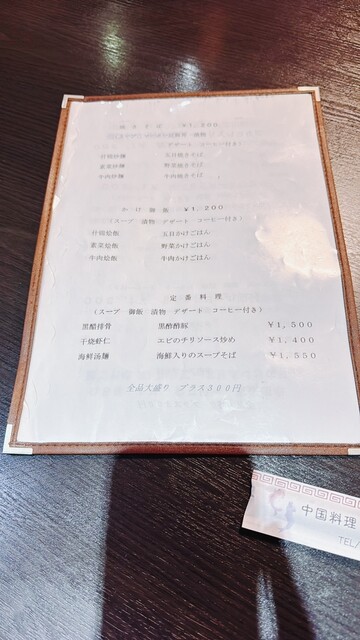 焼きそば ¥1,200
デザート コーヒー付き)
什锦炒麺 五目焼きそば
素菜炒麺 野菜焼きそば
牛肉炒麺 牛肉焼きそば
かけ御飯 ¥1,200
(スープ 漬物 デザート コーヒー付き)
什锦烩飯 五目かけごはん
素菜烩飯 野菜かけごはん
牛肉烩飯 牛肉かけごはん
定番料理
(スープ 御飯 漬物 デザート コーヒー付き)
黒醋排骨 黒酢酢豚 ¥1,500
干烧虾仁 エビのチリソース炒め ¥1,400
海鲜汤麺 海鮮入りのスープそば ¥1,550
全品大盛り プラス300円
中国料理
TEL/